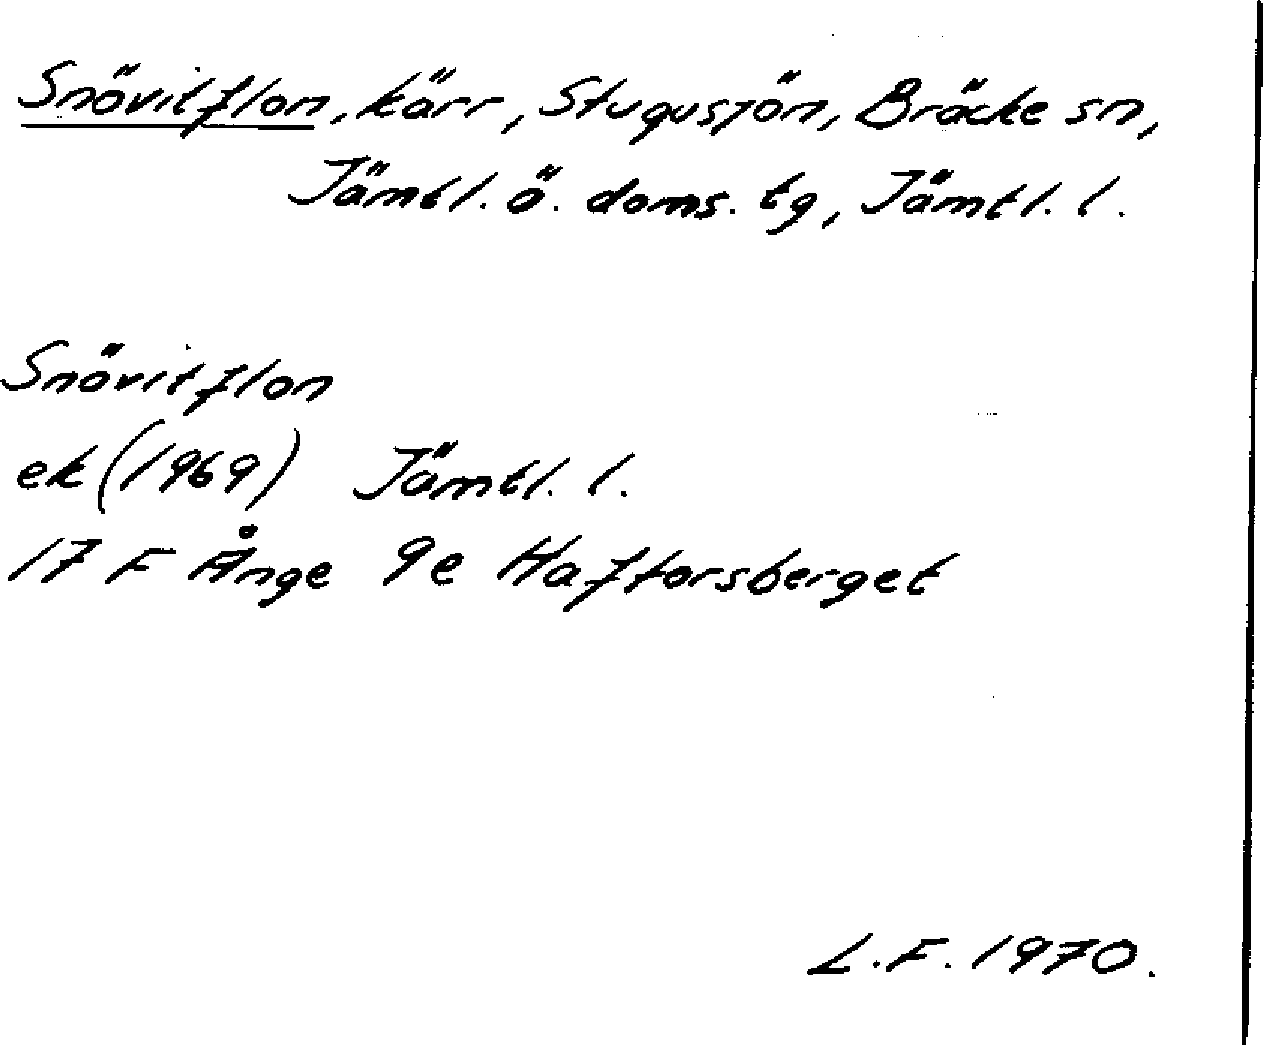 Snövitflon, kärr, Stugusjön, Bräcke sn,
Jämtl. ö. doms. tg, Jämtl. l.
Snövitflon
ek (1969) Jämtl. l.
17 F Ånge 9e Haftorsberget
L.F. 1970.